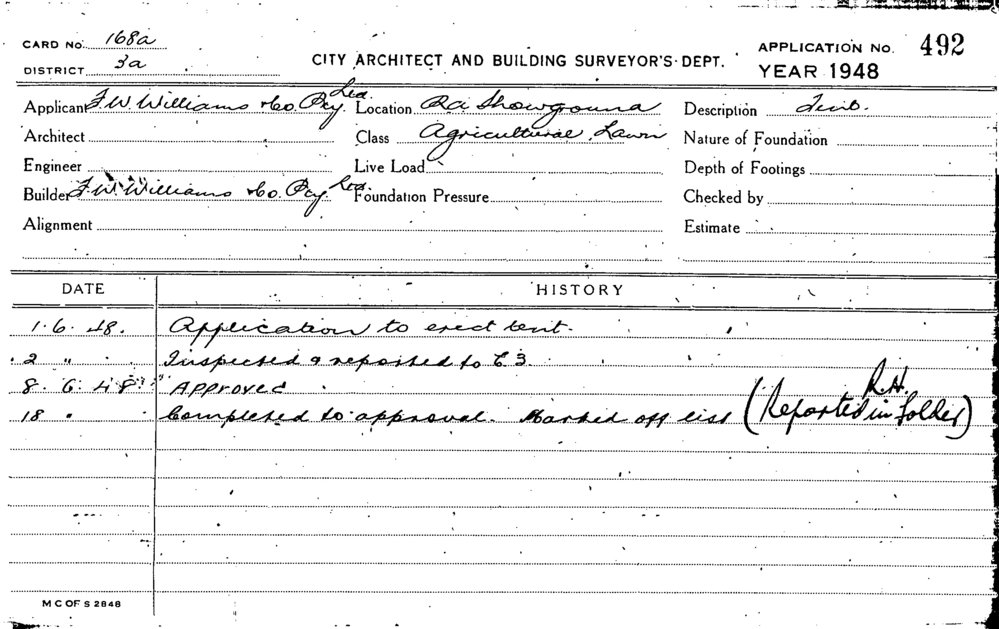 CARD No. 168a
DISTRICT 3a
CITY ARCHITECT AND BUILDING SURVEYOR'S DEPT.
APPLICATION No. 492
YEAR 1948
Applicant F.W. Williams & Co. Pty. Ltd. Location RA Showground Description Tent.
Architect Class Agricultural Lawn Nature of Foundation
Engineer Live Load Depth of Footings
Builder F.W. Williams & Co. Pty Ltd. Foundation Pressure Checked by
Alignment Estimate
DATE HISTORY
1.6.48. Application to erect tent.
2 " Inspected & reported to C3.
8.6.48 Approved R.H.
18 " Completed to approval. Marked off list (Reported in folder)
M C OF S 2848